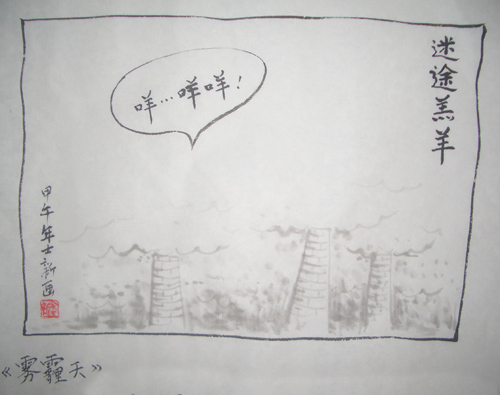 迷途羔羊
咩…咩咩！
甲午年士新画
《雾霾天》